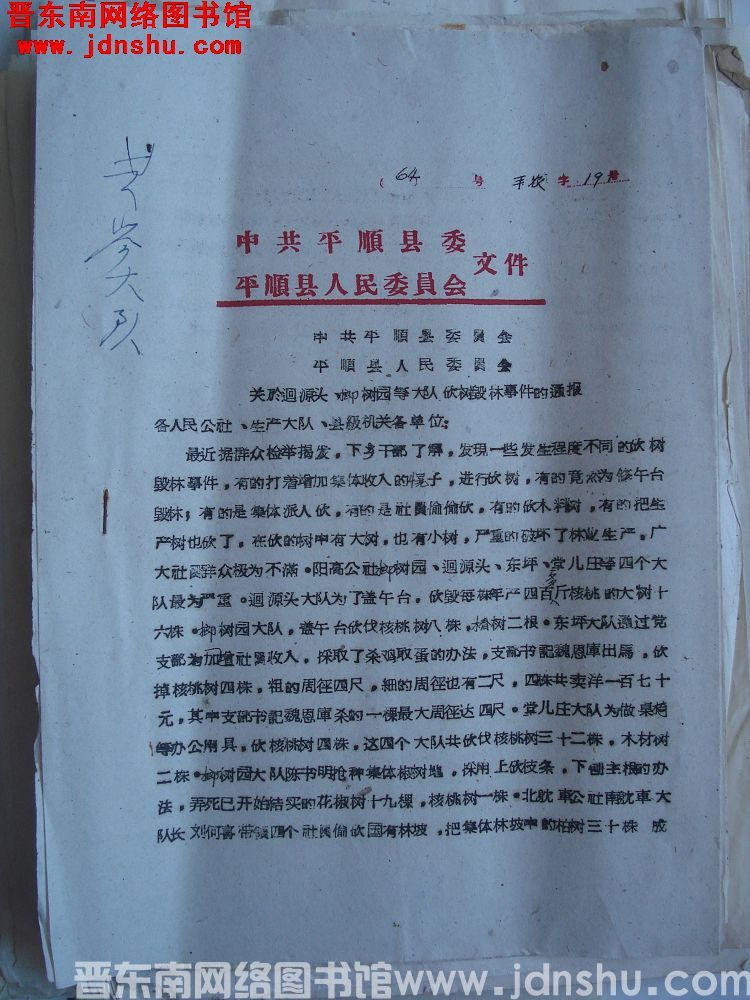 晋东南网络图书馆
www.jdnshu.com
(64) 号 平农字19号
中共平順县委
平順县人民委員会
文件
大队
中共平順县委員会
平順县人民委員会
关於迴源头、柳树园等大队砍树毁林事件的通报
各人民公社、生产大队、县級机关各单位:
最近据群众检举揭发,下乡干部了解,发現一些发生程度不同的砍树
毁林事件,有的打着增加集体收入的幌子,进行砍树,有的竟然为修午台
毁林;有的是集体派人砍,有的是社員偷偷砍,有的砍木料树,有的把生
产树也砍了,在砍的树中有大树,也有小树,严重的破坏了林业生产,广
大社員群众极为不滿。阳高公社柳树园、迴源头、东坪、堂儿庄等四个大
队最为严重。迴源头大队为了盖午台,砍毁每株年产四百多斤核桃的大树十
六株。柳树园大队,盖午台砍伐核桃树八株,椿树二根。东坪大队通过党
支部为加增社員收入,採取了杀鸡取蛋的办法,支部书記魏恩庫出馬,砍
掉核桃树四株,粗的周徑四尺,細的周徑也有二尺,四株共卖洋一百七十
元,其中支部书記魏恩庫杀的一棵最大周徑达四尺。堂儿庄大队为做桌椅
等办公用具,砍核桃树四株,这四个大队共砍伐核桃树三十二株,木材树
二株。柳树园大队陈书明抢种集体椒树地,採用上砍枝条,下刨主根的办
法,弄死已开始結实的花椒树十九棵,核桃树一株。北躭車公社南躭車大
队长刘何喜带領四个社員偷砍国有林坡,把集体林坡中的柏树三十株 成
晋东南网络图书馆www.jdnshu.com